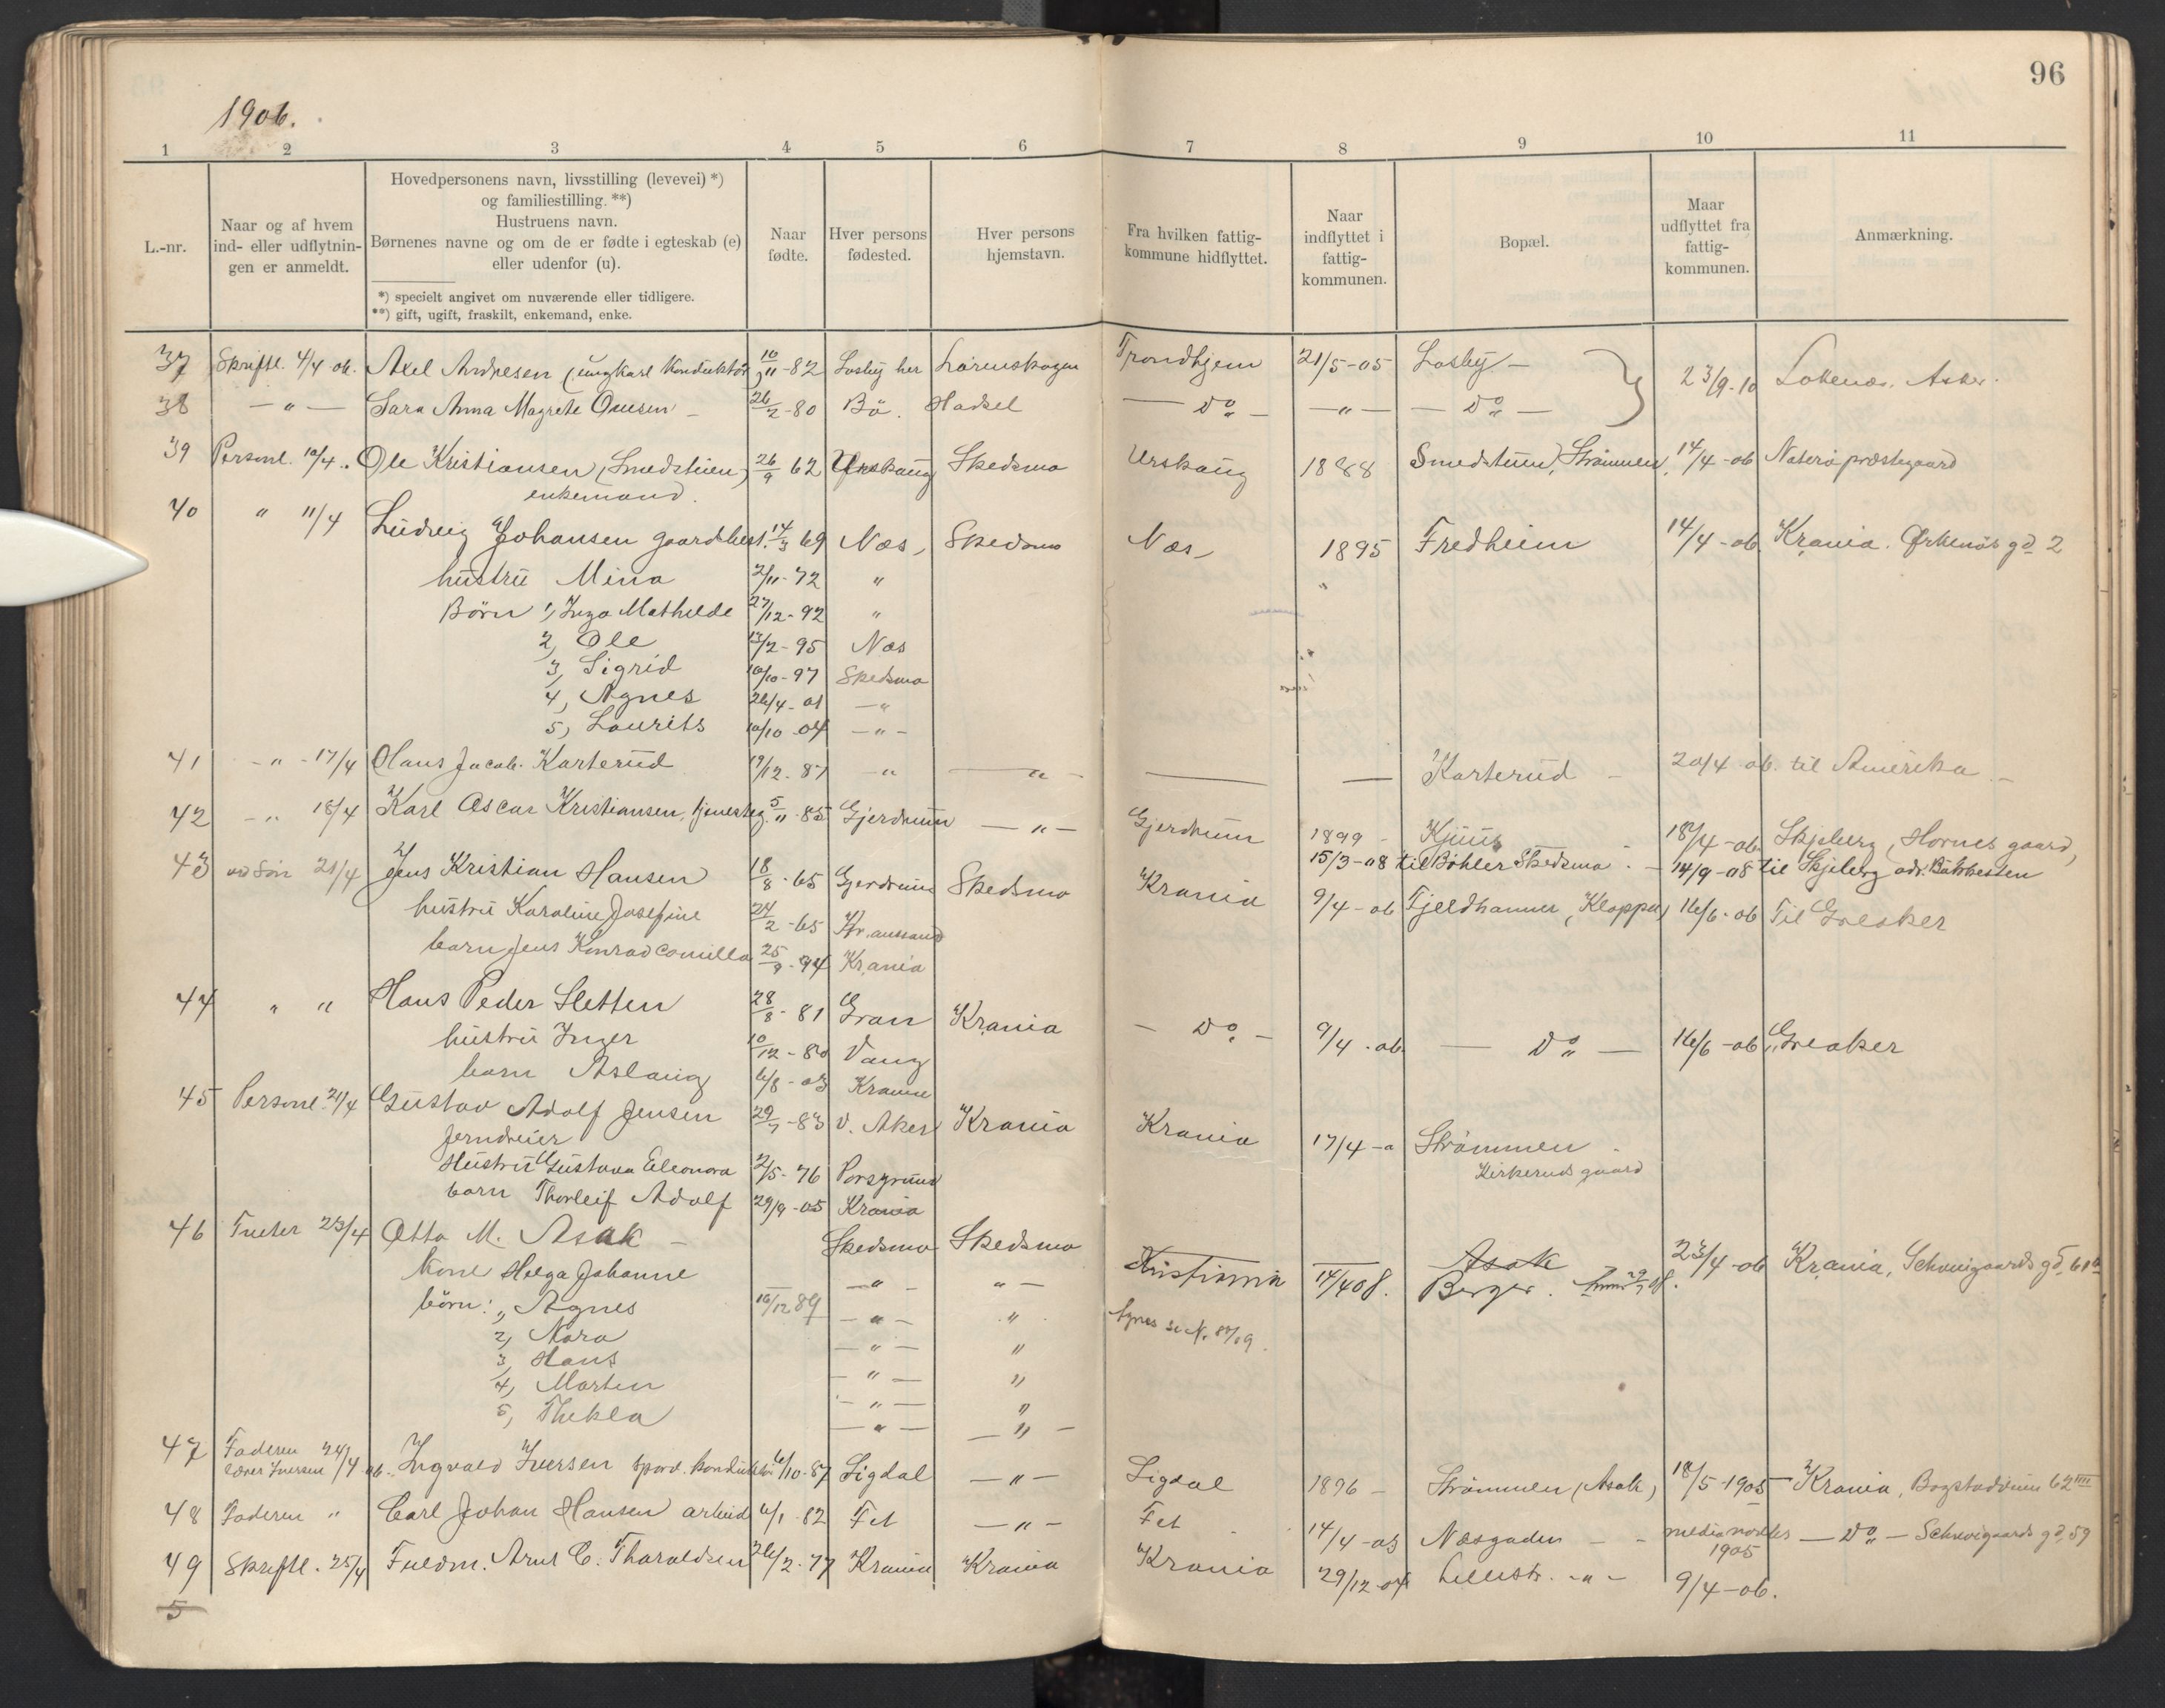 96
1906.
1 2 3 4 5 6 7 8 9 10 11
L.-nr.
Naar og af hvem
ind- eller udflytnin-
gen er anmeldt.
Hovedpersonens navn, livsstilling (levevei) *)
og familiestilling. **)
Hustruens navn.
Børnenes navne og om de er fødte i egteskab (e)
eller udenfor (u).
*) specielt angivet om nuværende eller tidligere.
**) gift, ugift, fraskilt, enkemand, enke.
Naar
fødte.
Hver persons
fødested.
Hver persons
hjemstavn.
Fra hvilken fattig-
kommune hidflyttet.
Naar
indflyttet i
fattig-
kommunen.
Bopæl.
Maar
udflyttet fra
fattig-
kommunen.
Anmærkning.
37 Skriftl. 4/4 06. Axel Andresen (ungkarl Konduktør) 10/11-82 Losby her Lørenskogen Trondhjem 21/5-05 Losby — 23/9-10 Asker.
38 — " — Sara Anna Magrete Ouesen — 26/2-80 Bø. Hadsel — Do — — " — — Do —
39 Personl. 10/4 .. Ole Kristiansen (Smedstuen) 26/9 62 Urskaug Skedsmo Urskaug 1888 Smedstuen, Strømmen, 14/4-06 Næsta præstegaard
enkemand.
40 " 11/4 Ludvig Johansen gaardbest. 14/3 69 Næs, Skedsmo Næs, 1895 Fredheim 14/4-06 Krania. gd 2
hustru Mina 2/11-72 " "
Børn 1, Inga Mathilde 27/12-92 "
2, Ole 13/2-95 Næs
3, Sigrid 10/10-97 Skedsmo
4, Agnes 26/4-01 — "
5, Laurits 10/10 04 — " —
41 — " — 17/4 Hans Jacob Karterud 19/12-87 — " — " — — — Karterud — 20/4-06 til Amerika —
42 — " 18/4 Karl Oscar Kristiansen, tjenesteg. 5/11-85 Gjerdrum — " — Gjerdrum 1899 — Kjuus 18/4-06 Skjeberg, Hornes gaard,
15/3-08 til Bøhler Skedsmo — 14/9-08 til Skjeberg adr.
43 ved Søn 21/4 Jens Kristian Hansen 18/8-65 Gjerdrum Skedsmo Krania 9/4-06 Fjeldhammer (Kloppa) 16/6-06 Til Greaker
hustru Karoline Josefine 24/2-65 Kr.anssand
barn Jens Konrad Comillo 25/9-94 Krania
44 " " Hans Peder Sletten 28/8-81 Gran Krania — Do — 9/4-06 — Do — 16/6-06 " Greaker
hustru Inger 10/12-80 Vang
barn Aslaug 6/8-03 Krania
45 Personl. 21/4 Gustav Adolf Jensen 29/7-83 V. Aker Krania Krania 17/4-0 Strømmen
Jerndreier Kirkeruds gaard
Hustru Gustava Eleonora 2/5-76 Porsgrund
barn Thorleif Adolf 29/9-05 Krania
46 Fueter 23/4 Otto M. Asak — Skedsmo Skedsmo Asak 23/4-06 Krania, Schweigaards gd. 61
kone Helga Johanne — " — " — Kristiania 14/4 08. Berger.
børn: 1, Agnes 16/12 89 — " — " Agnes se N. 87/09.
2, Nora — " — "
3, Hans — " — "
4, Morten — " — "
5, Thekla — " — "
47 Faderen 24/4 06. Ingvald Iversen sporv. konduktør 6/10-87 Sigdal — " — Sigdal 1896 — Strømmen (Asak) 18/5-1905 — Krania, Bogstadveien 62 IIII
Iversen
48 Faderen " Carl Johan Hansen arbeid 6/1-82 Fet — " — Fet 14/4-03 Næsgaden — medio 1905 — Do — Schweigaards gd, 59
49 Skriftl. 25/4 Fuldm. Arnt C. Tharaldsen 26/2-77 Krania Krania Krania 29/12-04 Lillestr. — " — 9/4-06.
5